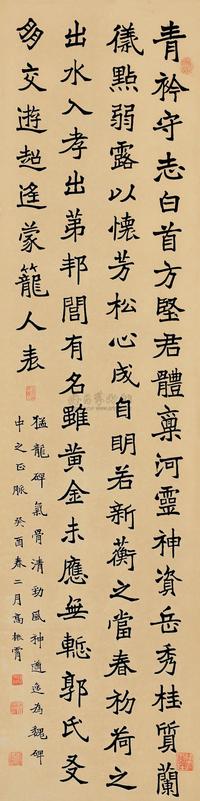 青衿守志白首方堅君體稟河靈神資岳秀桂質蘭
儀點弱露以懷芳松心成自明若新蘅之當春初荷之
出水入孝出弟邦閭有名雖黃金未應無慙郭氏友
朋交遊超遙蒙籠人表
猛龍碑氣骨清勁風神遒逸為魏碑
中之正脈 癸酉春二月高振霄